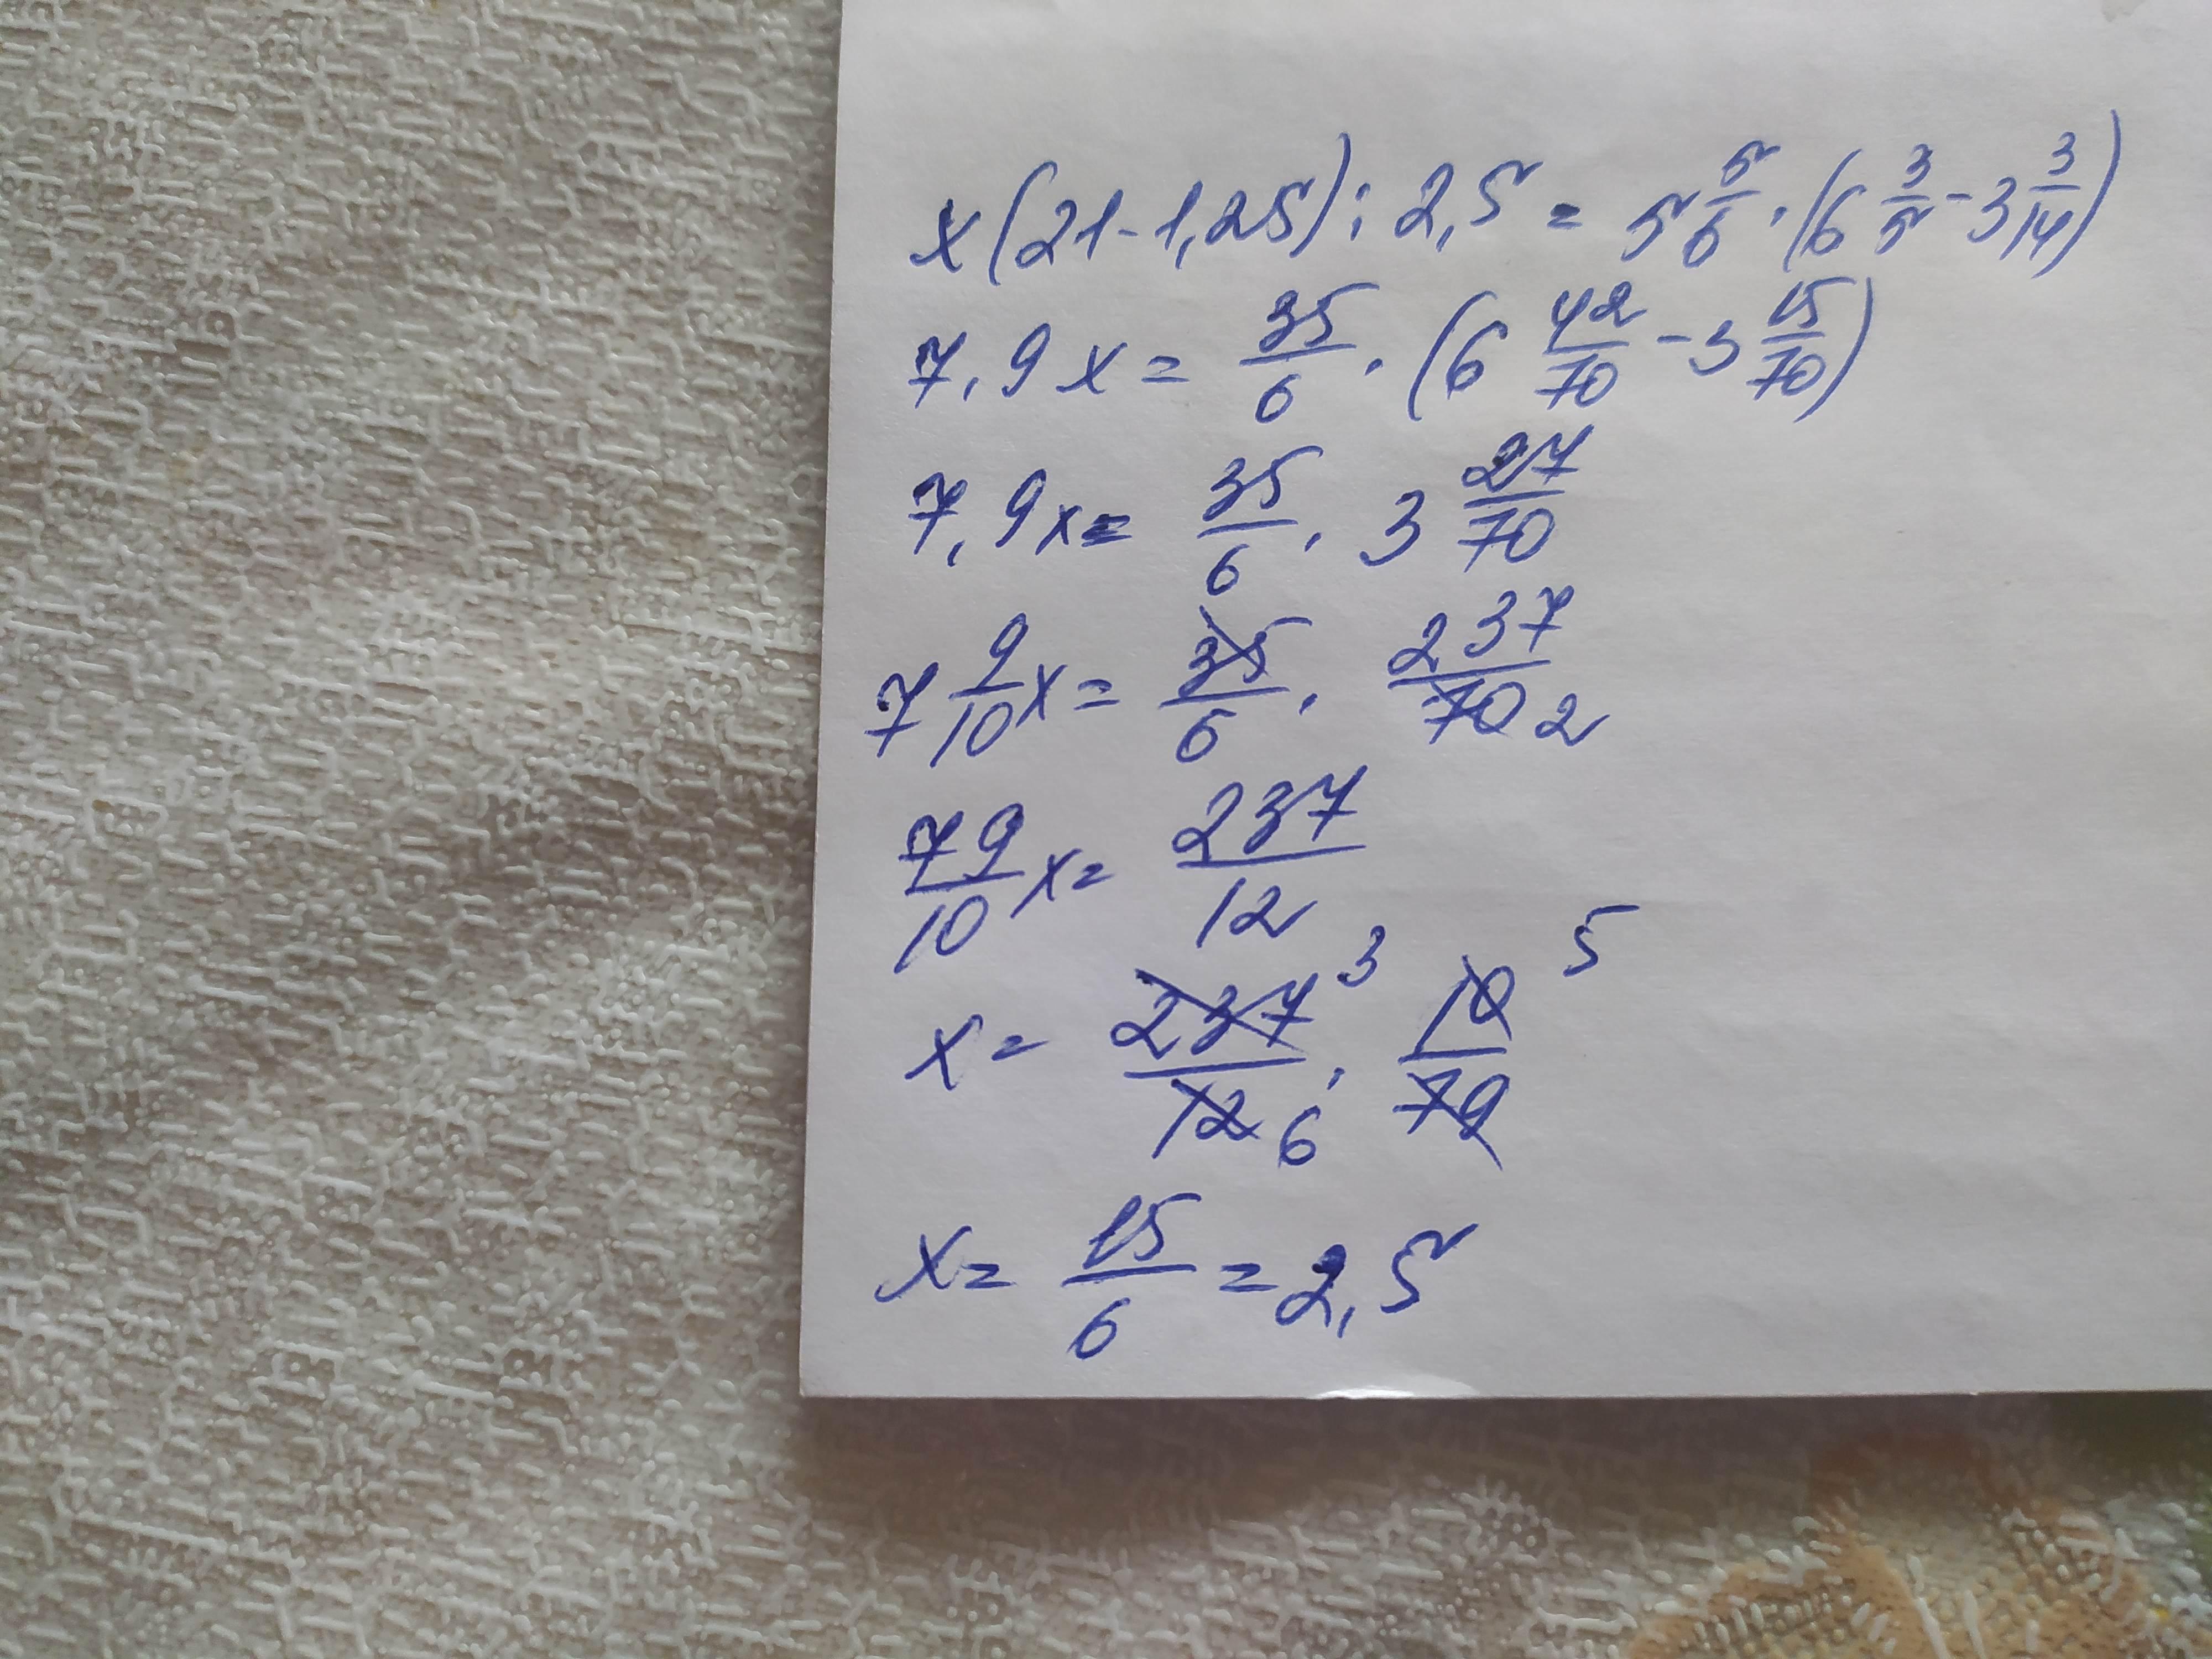 x(21-1,25):2,5 = 5 5/6 · (6 3/5 - 3 3/14)
7,9x = 35/6 · (6 42/70 - 3 15/70)
7,9x = 35/6 · 3 27/70
7 9/10 x = 35/6 · 237/70 2
79/10 x = 237/12
x = 237/12 3 6 · 10/79 5
x = 15/6 = 2,5